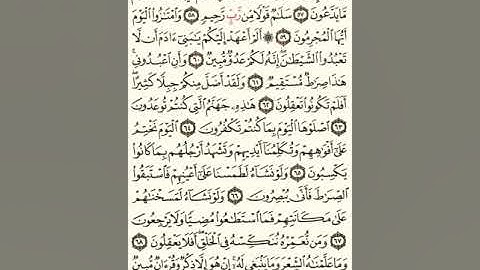 مَّا يَدَّعُونَ ٥٧ سَلَٰمٌ قَوْلًا مِّن رَّبٍّ رَّحِيمٍ ٥٨ وَٱمْتَٰزُوا۟ ٱلْيَوْمَ
أَيُّهَا ٱلْمُجْرِمُونَ ٥٩ أَلَمْ أَعْهَدْ إِلَيْكُمْ يَٰبَنِىٓ ءَادَمَ أَن لَّا
تَعْبُدُوا۟ ٱلشَّيْطَٰنَ إِنَّهُۥ لَكُمْ عَدُوٌّ مُّبِينٌ ٦٠ وَأَنِ ٱعْبُدُونِى
هَٰذَا صِرَٰطٌ مُّسْتَقِيمٌ ٦١ وَلَقَدْ أَضَلَّ مِنكُمْ جِبِلًّا كَثِيرًا
أَفَلَمْ تَكُونُوا۟ تَعْقِلُونَ ٦٢ هَٰذِهِۦ جَهَنَّمُ ٱلَّتِى كُنتُمْ تُوعَدُونَ
٦٣ ٱصْلَوْهَا ٱلْيَوْمَ بِمَا كُنتُمْ تَكْفُرُونَ ٦٤ ٱلْيَوْمَ نَخْتِمُ
عَلَىٰٓ أَفْوَٰهِهِمْ وَتُكَلِّمُنَآ أَيْدِيهِمْ وَتَشْهَدُ أَرْجُلُهُم بِمَا كَانُوا۟
يَكْسِبُونَ ٦٥ وَلَوْ نَشَآءُ لَطَمَسْنَا عَلَىٰٓ أَعْيُنِهِمْ فَٱسْتَبَقُوا۟
ٱلصِّرَٰطَ فَأَنَّىٰ يُبْصِرُونَ ٦٦ وَلَوْ نَشَآءُ لَمَسَخْنَٰهُمْ
عَلَىٰ مَكَانَتِهِمْ فَمَا ٱسْتَطَٰعُوا۟ مُضِيًّا وَلَا يَرْجِعُونَ
٦٧ وَمَن نُّعَمِّرْهُ نُنَكِّسْهُ فِى ٱلْخَلْقِ أَفَلَا يَعْقِلُونَ ٦٨
وَمَا عَلَّمْنَٰهُ ٱلشِّعْرَ وَمَا يَنۢبَغِى لَهُۥٓ إِنْ هُوَ إِلَّا ذِكْرٌ وَقُرْءَانٌ مُّبِينٌ